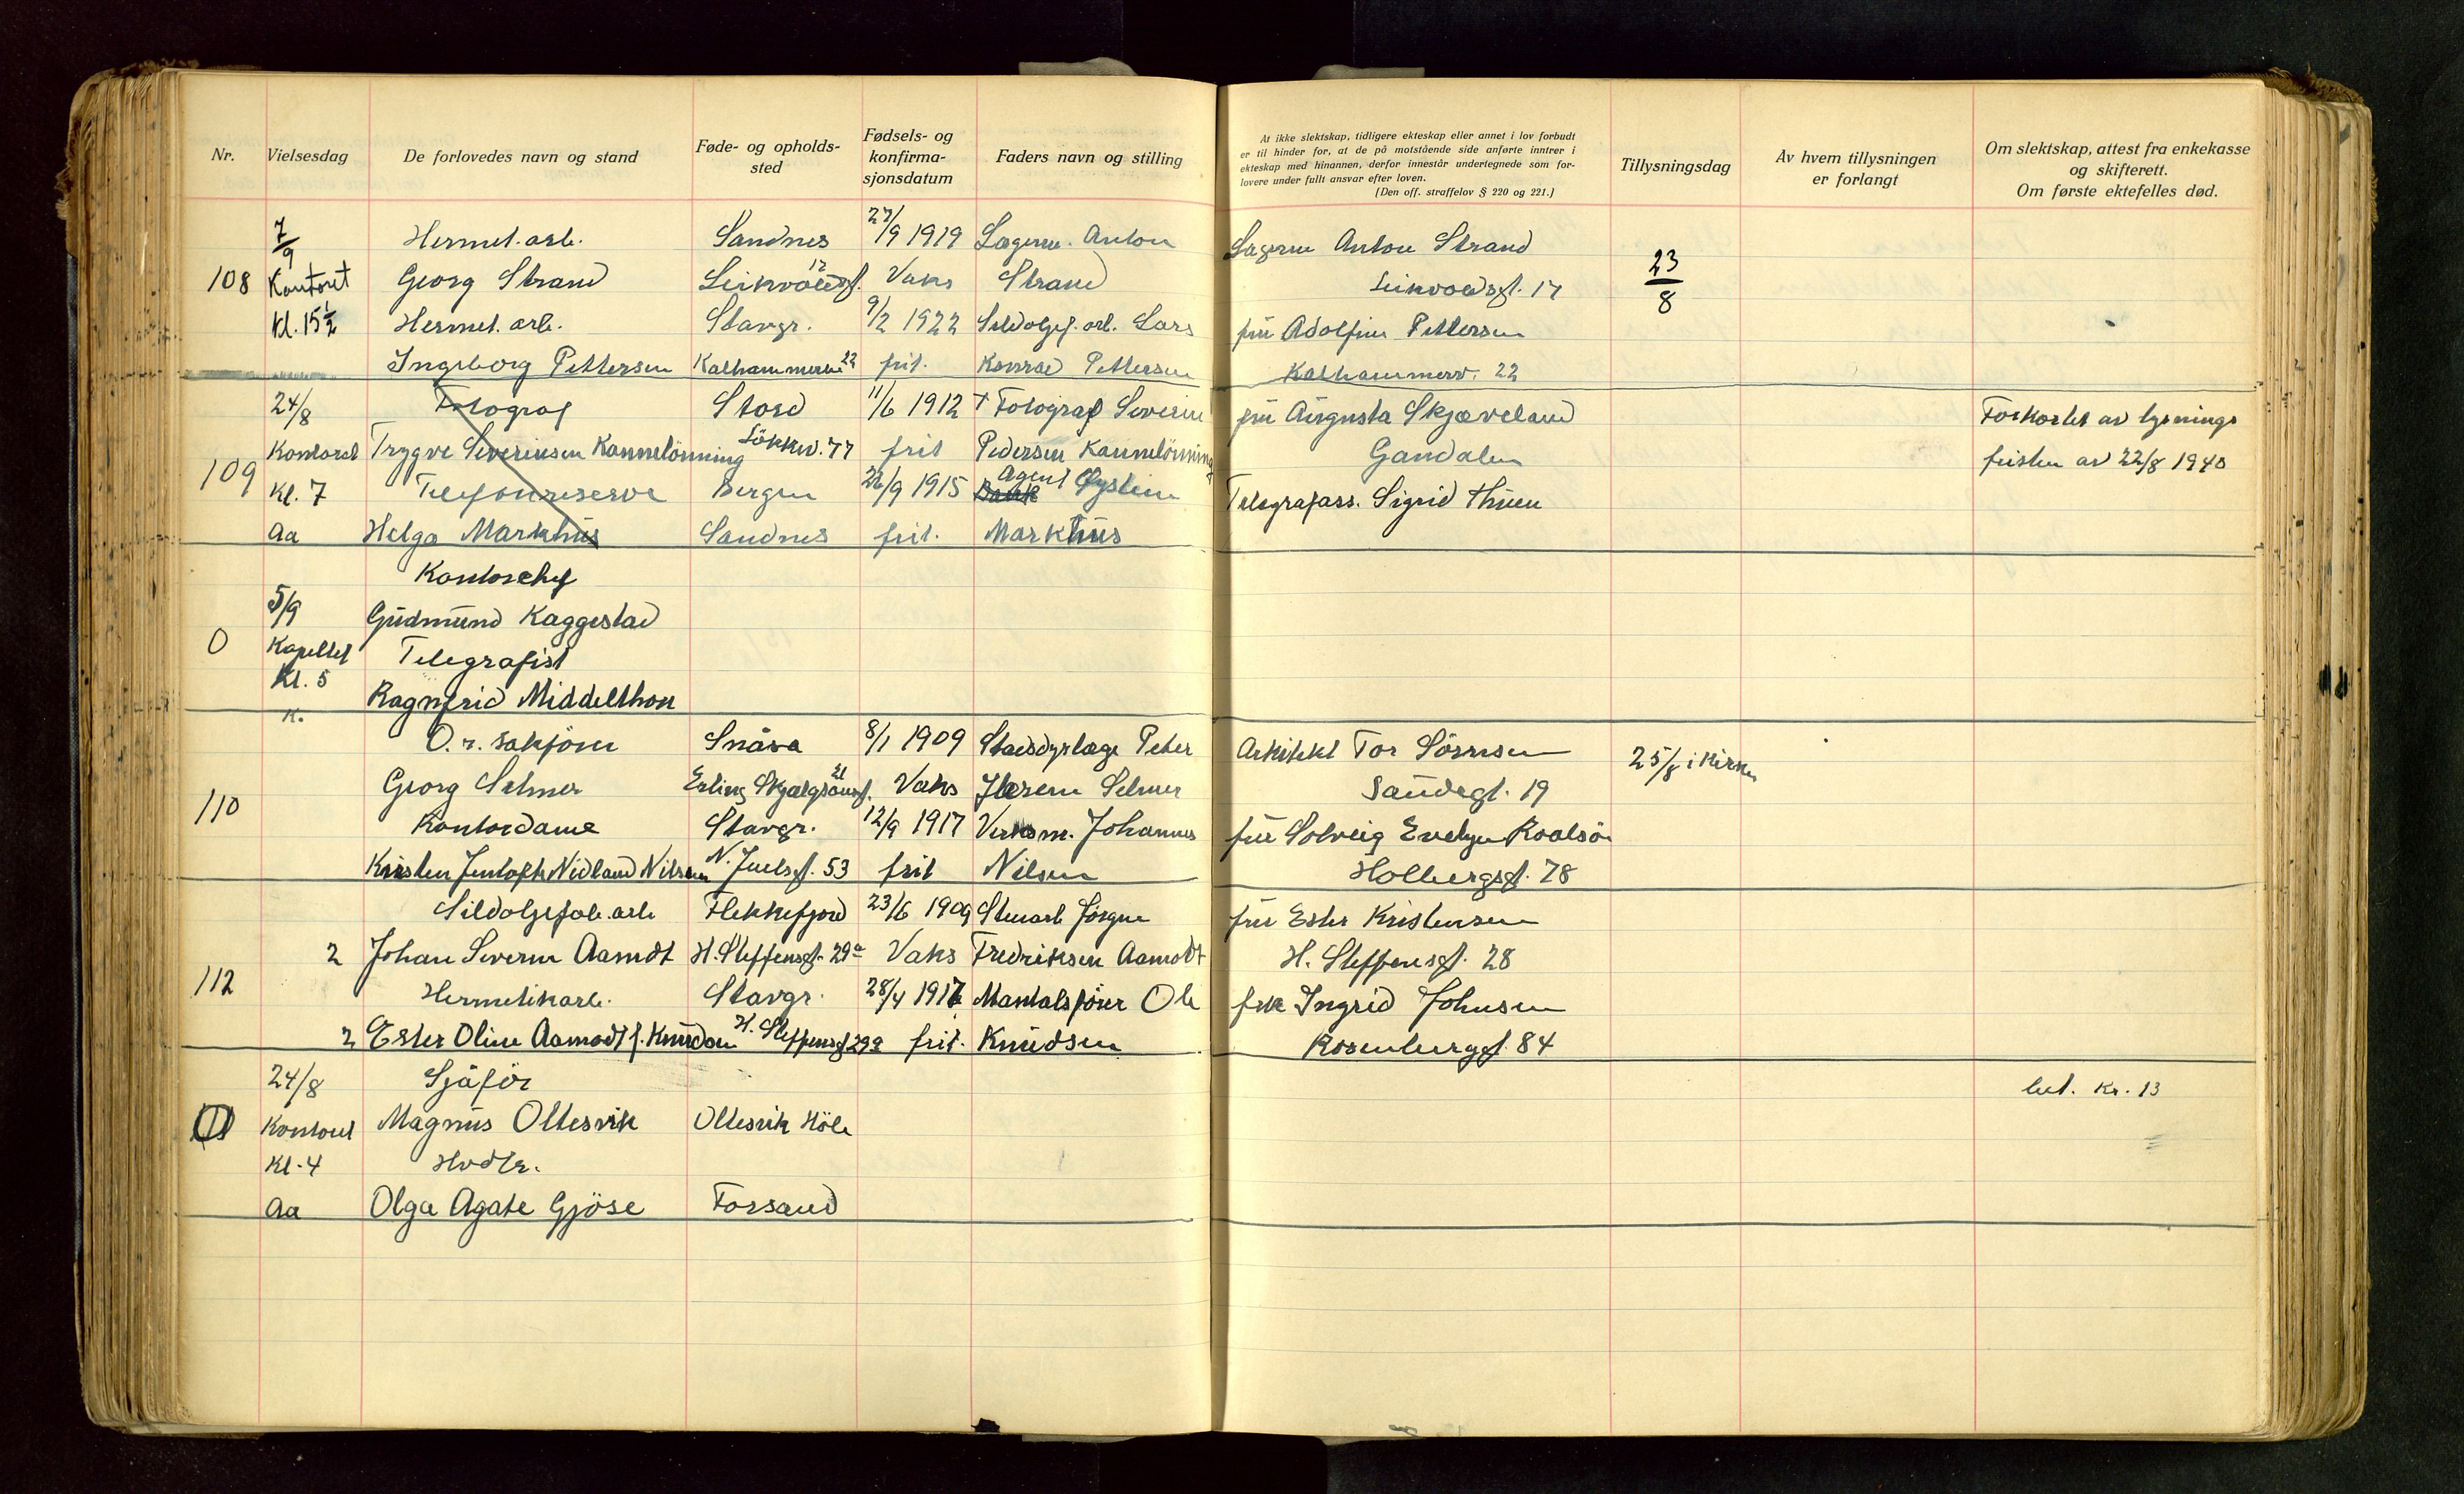 Nr.
Vielsesdag
De forlovedes navn og stand
Føde- og opholds-
sted
Fødsels- og
konfirma-
sjonsdatum
Faders navn og stilling
At ikke slektskap, tidligere ekteskap eller annet i lov forbudt
er til hinder for, at de på motstående side anførte inntrer i
ekteskap med hinannen, derfor innestår undertegnede som for-
lovere under fullt ansvar efter loven.
[Den off. straffelov § 220 og 221.]
Tillysningsdag
Av hvem tillysningen
er forlangt
Om slektskap, attest fra enkekasse
og skifterett.
Om første ektefelles død.
7/9 Hermet. arb. Sandnes 27/9 1919 Lagerm. Anton Lagerm Anton Strand
108 Kontoret Georg Strand Vaks Strand 23/8
Kl. 15½ Hermet. arb. Stavgr. 9/2 1922 Sildoljef. arb. Lars fru Adolfine Pettersen
Ingeborg Pettersen Kalhammerv 22 frit. Konrad Pettersen Kalhammerv. 22
24/8 Fotograf Stord 11/6 1912 † Fotograf Severin fru Augusta Skjæveland Forkortet av lysnings
109 Kontoret Trygve Severinsen Kannelönning Lökkev. 77 frit Pedersen Kannelönning Gandalen fristen av 22/8 1940
Kl. 7 Telefonreserve Bergen 26/9 1915 Agent Øystein Telegrafass. Sigrid Thuen
Aa Helga Markhus Sandnes frit. Markhus
Kontorchef
5/9 Gudmund Kaggestad
0 Kapellet Telegrafist
Kl. 5 Ragnfrid Middelthon
K.
O.r. sakförer Snåsa 8/1 1909 Stadsdyrlæge Peter Arkitekt Tor Sörensen 25/8 i Kirken
110 Georg Selmer Erling Skjalgsonsgt. 21 Vaks Selmer Sandegt. 19
Kontordame Stavgr. 12/9 1917 Verksm. Johannes fru Solveig Evelyn Roalsö
Kirsten Jentoft Nidland Nilsen N. Juelsgt. 53 frit Nilsen Holbergsgt. 78
Sildoljefab. arb Flekkefjord 23/6 1909 Stuearb Jörgen fru Ester Kristensen
112 2 Johan Severin Aamodt H. Steffensgt. 29a Vaks Fredriksen Aamodt H. Steffensgt. 28
Hermetikarb. Stavgr. 28/4 Mantalsförer Ole frk Ingrid Johnsen
2 Ester Oline Aamodt f. Knudsen H. Steffensgt 29a frit. Knudsen Rosenbergt. 84
24/8 Sjåför bet. kr. 13
0 Kontoret Magnus Oltesvik Oltesvik Höle
Kl. 4 Husbt.
Aa Olga Agate Gjöse Forsand